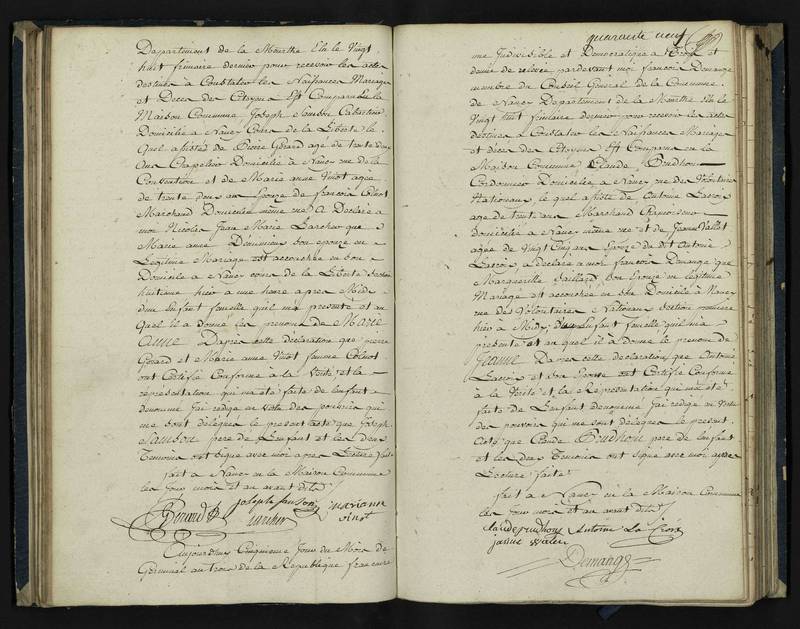 Departement de la Meurthe Elu le Vingt
huit frimaire dernier pour recevoir les actes
destines à Constater les Naissances Mariages
et Deces des Citoyens Est Comparu En la
Maison Commune Joseph Sanson Cabartier
Domicilié a Nancy Cours de la Liberté le
quel assisté de Pierre Gerard agé de trente deux
Ans Chapelier Domicilié a Nancy rue de la
Convention et de Marie anne Vinot agée
de trente deux ans Epouze de francois Colnot
Marchand Domicilié même rue A Declaré a
moi Nicolas Jean Marie Larcher que
Marie anne son epouze en
Legitime Mariage est accouchée en son
Domicile a Nancy cours de la Liberté section
huitieme hier a une heure apres Midi
d'une Enfant femelle qu'il m'a presenté et au
quel il a donné les prenoms de Marie
Anne Dapres cette declaration que pierre
Gerard et Marie anne Vinot femme Colnot
ont Certifié Conforme à la Verité et la
representation qui m'a été faite de l'enfant
denommé J'ai redigé en vertu des pouvoirs qui
me sont délégués le present acte que Joseph
Sanson pere de l'Enfant et les deux
Temoins ont signé avec moi apres Lecture faite
fait a Nancy en la Maison Commune
les Jour mois et an avant dits
Joseph Sanson mariann
Gerard Larcher vinot
Aujourdhuy Cinquieme Jour du Mois de
Germinal an trois de la Republique francaise
quarante neuf
une Indivisible et Democratique a trois et
demie de relevée pardevant moi francois Demange
membre du Conseil General de la Commune
de Nancy Departement de la Meurthe Elu le
Vingt huit frimaire dernier pour recevoir les actes
destines a Constater les Naissances Mariages
et deces des Citoyens Est Comparu en la
Maison Commune Claude Prudhon
Cordonnier Domicilié a Nancy rue des Volontaires
Nationaux le quel assisté de Antoine Lacroix
agé de trente ans Marchand
domicilié a Nancy même rue et de Jeanne Vallet
agée de Vingt Cinq ans Epouze du dit Antoine
Lacroix a declaré a moi francois Demange que
Marguerite Gaillard son Epouze en legitime
Mariage est accouchée en son Domicile a Nancy
rue des Volontaires Nationaux section premiere
hier a Midy d'un Enfant femelle qu'il m'a
presenté et au quel il a Donné le prenom de
Jeanne Dapres cette declaration que Antoine
Lacroix et son Epouse ont Certifié Conforme
à la Verité et la Représentation qui m'a été
faite de L'enfant denommé J'ai redigé en Vertu
des pouvoirs qui me sont délégués le present
acte que Claude Prudhon pere de l'enfant
et les deux Temoins ont signé avec moi apres
Lecture faite
fait a Nancy en la Maison Commune
les Jour mois et an avant dits
Claude prudhons Antoine La Croix
janne valet
Demange